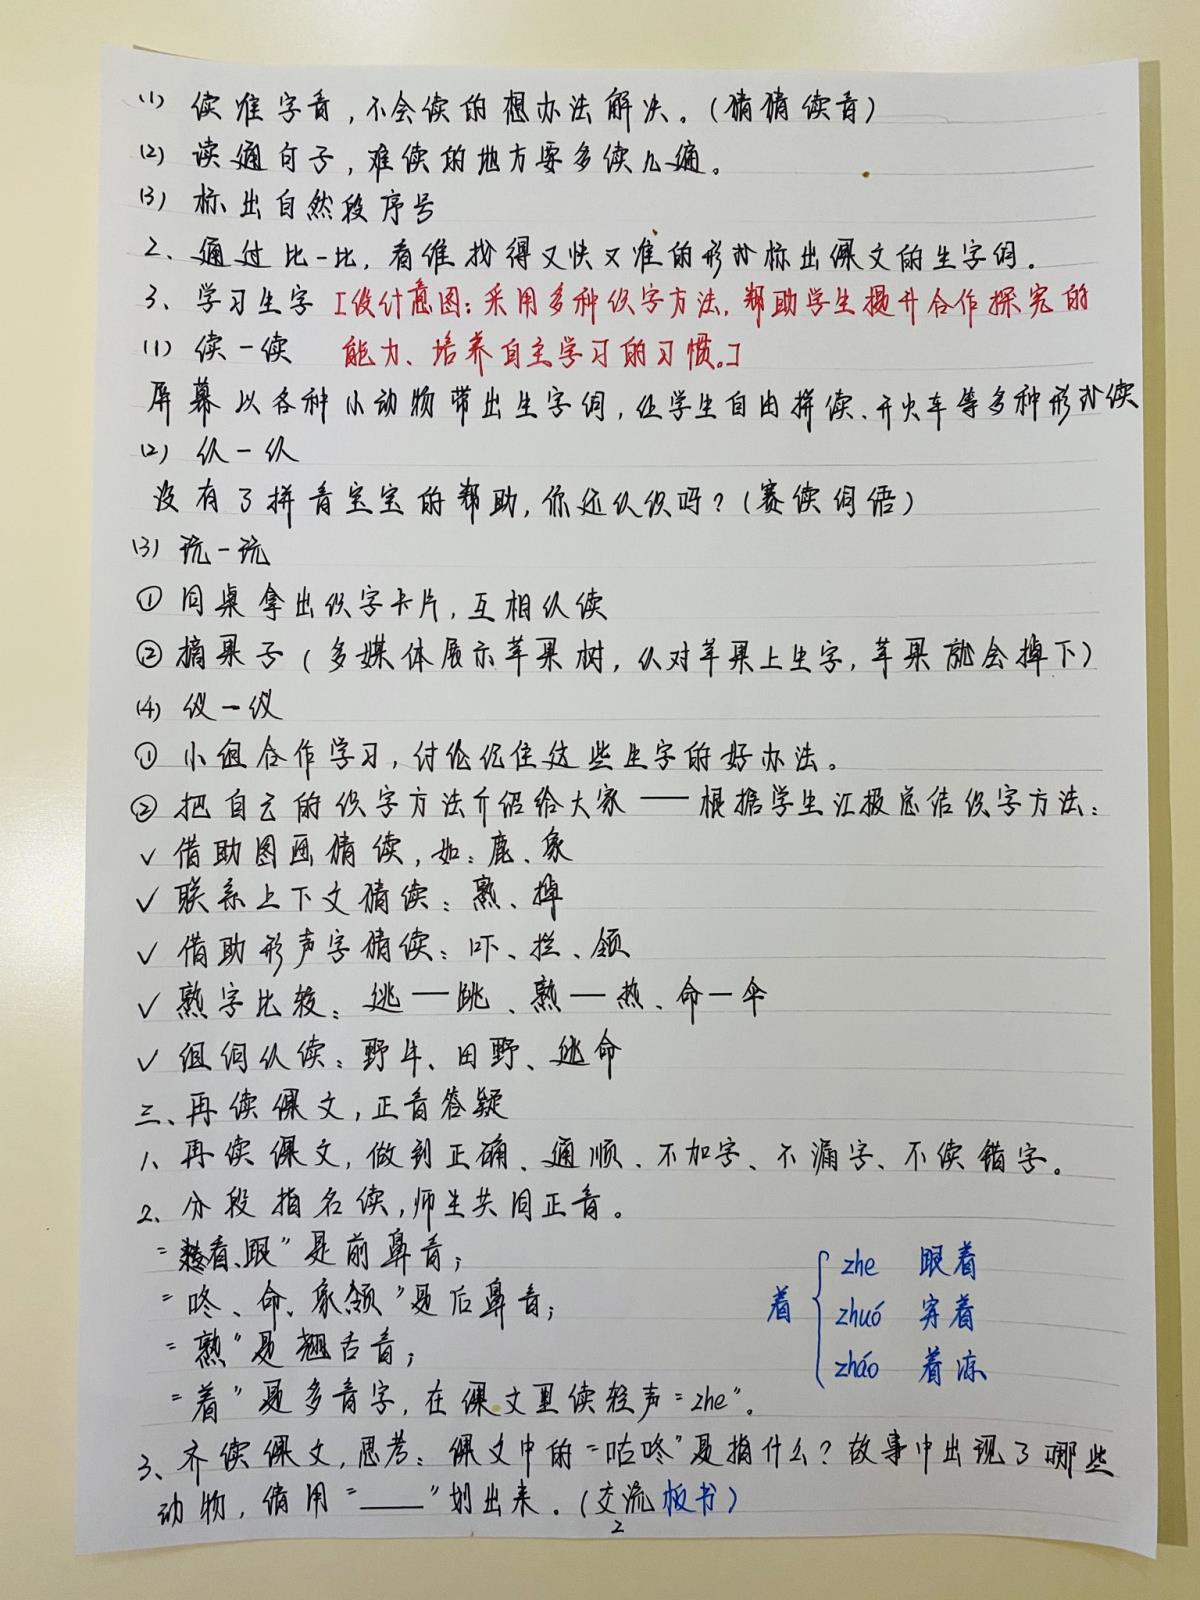 (1) 读准字音,不会读的想办法解决。(猜猜读音)
(2) 读通句子,难读的地方要多读几遍。
(3) 标出自然段序号
2、通过比一比,看谁找得又快又准的形式标出课文的生字词。
3、学习生字 [设计意图:采用多种识字方法,帮助学生提升合作探究的
(1) 读一读 能力、培养自主学习的习惯。]
屏幕以各种小动物带出生字词,让学生自由拼读、开火车等多种形式读
(2) 认一认
没有了拼音宝宝的帮助,你还认识吗?(赛读词语)
(3) 玩一玩
① 同桌拿出识字卡片,互相认读
② 摘果子(多媒体展示苹果树,认对苹果上生字,苹果就会掉下)
(4) 议一议
① 小组合作学习,讨论记住这些生字的好办法。
② 把自己的识字方法介绍给大家——根据学生汇报总结识字方法:
✓ 借助图画猜读,如:鹿、象
✓ 联系上下文猜读:熟、掉
✓ 借助形声字猜读:吓、拦、领
✓ 熟字比较:逃——跳、熟——热、命—伞
✓ 组词认读:野牛、田野、逃命
三、再读课文,正音答疑
1、再读课文,做到正确、通顺、不加字、不漏字、不读错字。
2、分段指名读,师生共同正音。
、跟"是前鼻音;
"咚、命、象领"是后鼻音;
"熟"是翘舌音;
"着"是多音字,在课文里读轻声"zhe"。
着 { zhe 跟着
zhuó 穿着
zháo 着凉
3、齐读课文,思考:课文中的"咕咚"是指什么?故事中出现了哪些
动物,请用"____"划出来。(交流板书)
2